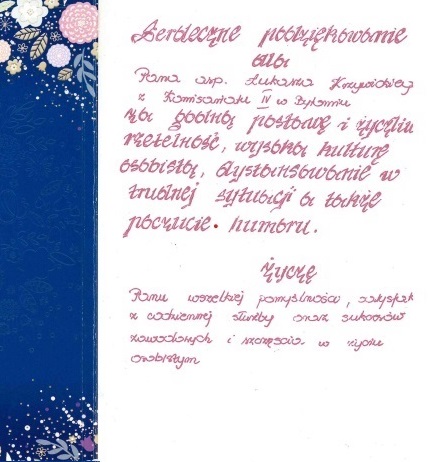 Serdeczne podziękowanie
dla
Pana asp. Łukasza
z Komisariatu IV w Bytomiu
za godną postawę i
rzetelność, wysoką kulturę
osobistą, dystansowanie w
trudnej sytuacji a także
poczucie humoru.
Życzę
Panu wszelkiej pomyślności, satysfak
z codziennej służby oraz sukcesów
zawodowych i szczęścia w życiu
osobistym